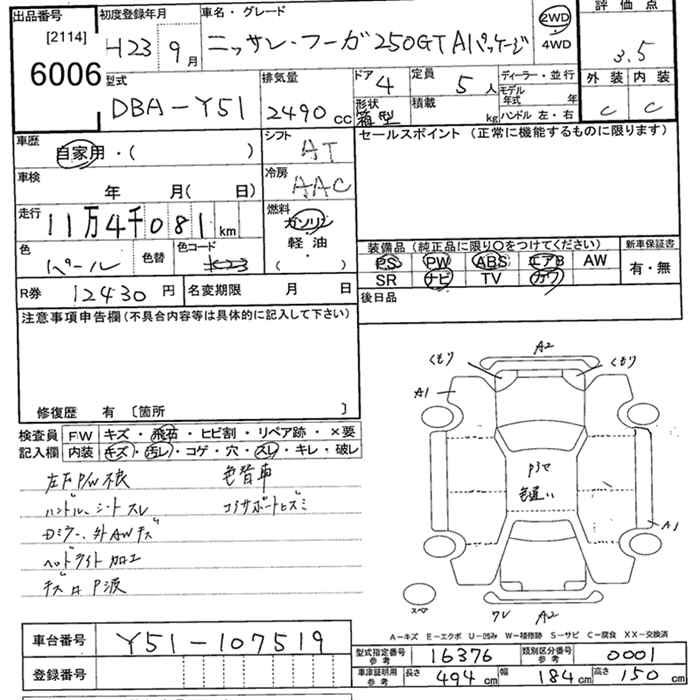 出品番号
[2114]
6006
初度登録年月
H23 9月
車名・グレード
ニッサン・フーガ 250GT Aパッケージ
2WD
・
4WD
評価点
3.5
外装 内装
C C
型式
DBA-Y51
排気量
2490 cc
ドア 4
定員 5人
形状 箱型
積載 kg
ディーラー・並行
モデル年式 年
ハンドル 左・右
車歴
自家用・( )
シフト
AT
セールスポイント(正常に機能するものに限ります)
車検
年 月( 日)
冷房
AAC
走行
11万4千081 km
燃料
ガソリン
軽油
・
( )
色
パール
色替
色コード
K23
装備品(純正品に限り○をつけてください)
新車保証書
PS PW ABS エアB AW
SR ナビ TV カワ
有・無
R券 12430円
名変期限 月 日
後日品
注意事項申告欄(不具合内容等は具体的に記入して下さい)
修復歴 有 [箇所 ]
検査員記入欄
FW キズ・飛石・ヒビ割・リペア跡・×要
内装 キズ・汚レ・コゲ・穴・スレ・キレ・破レ
左F P/W不良
色替車
ハンドル、シートスレ
コアサポートヒズミ
Dミラー、外AWキズ
ヘッドライト加工
キズ有 P波
くもり A2 くもり
A1
P3マ
色違い
A1
スペア
ワレ A2
A-キズ E-エクボ U-凹み W-補修跡 S-サビ C-腐食 XX-交換済
車台番号
Y51-107519
登録番号
型式指定番号 参考 16376
類別区分番号 参考 0001
車庫証明用 参考 長さ 494cm 幅 184cm 高さ 150cm